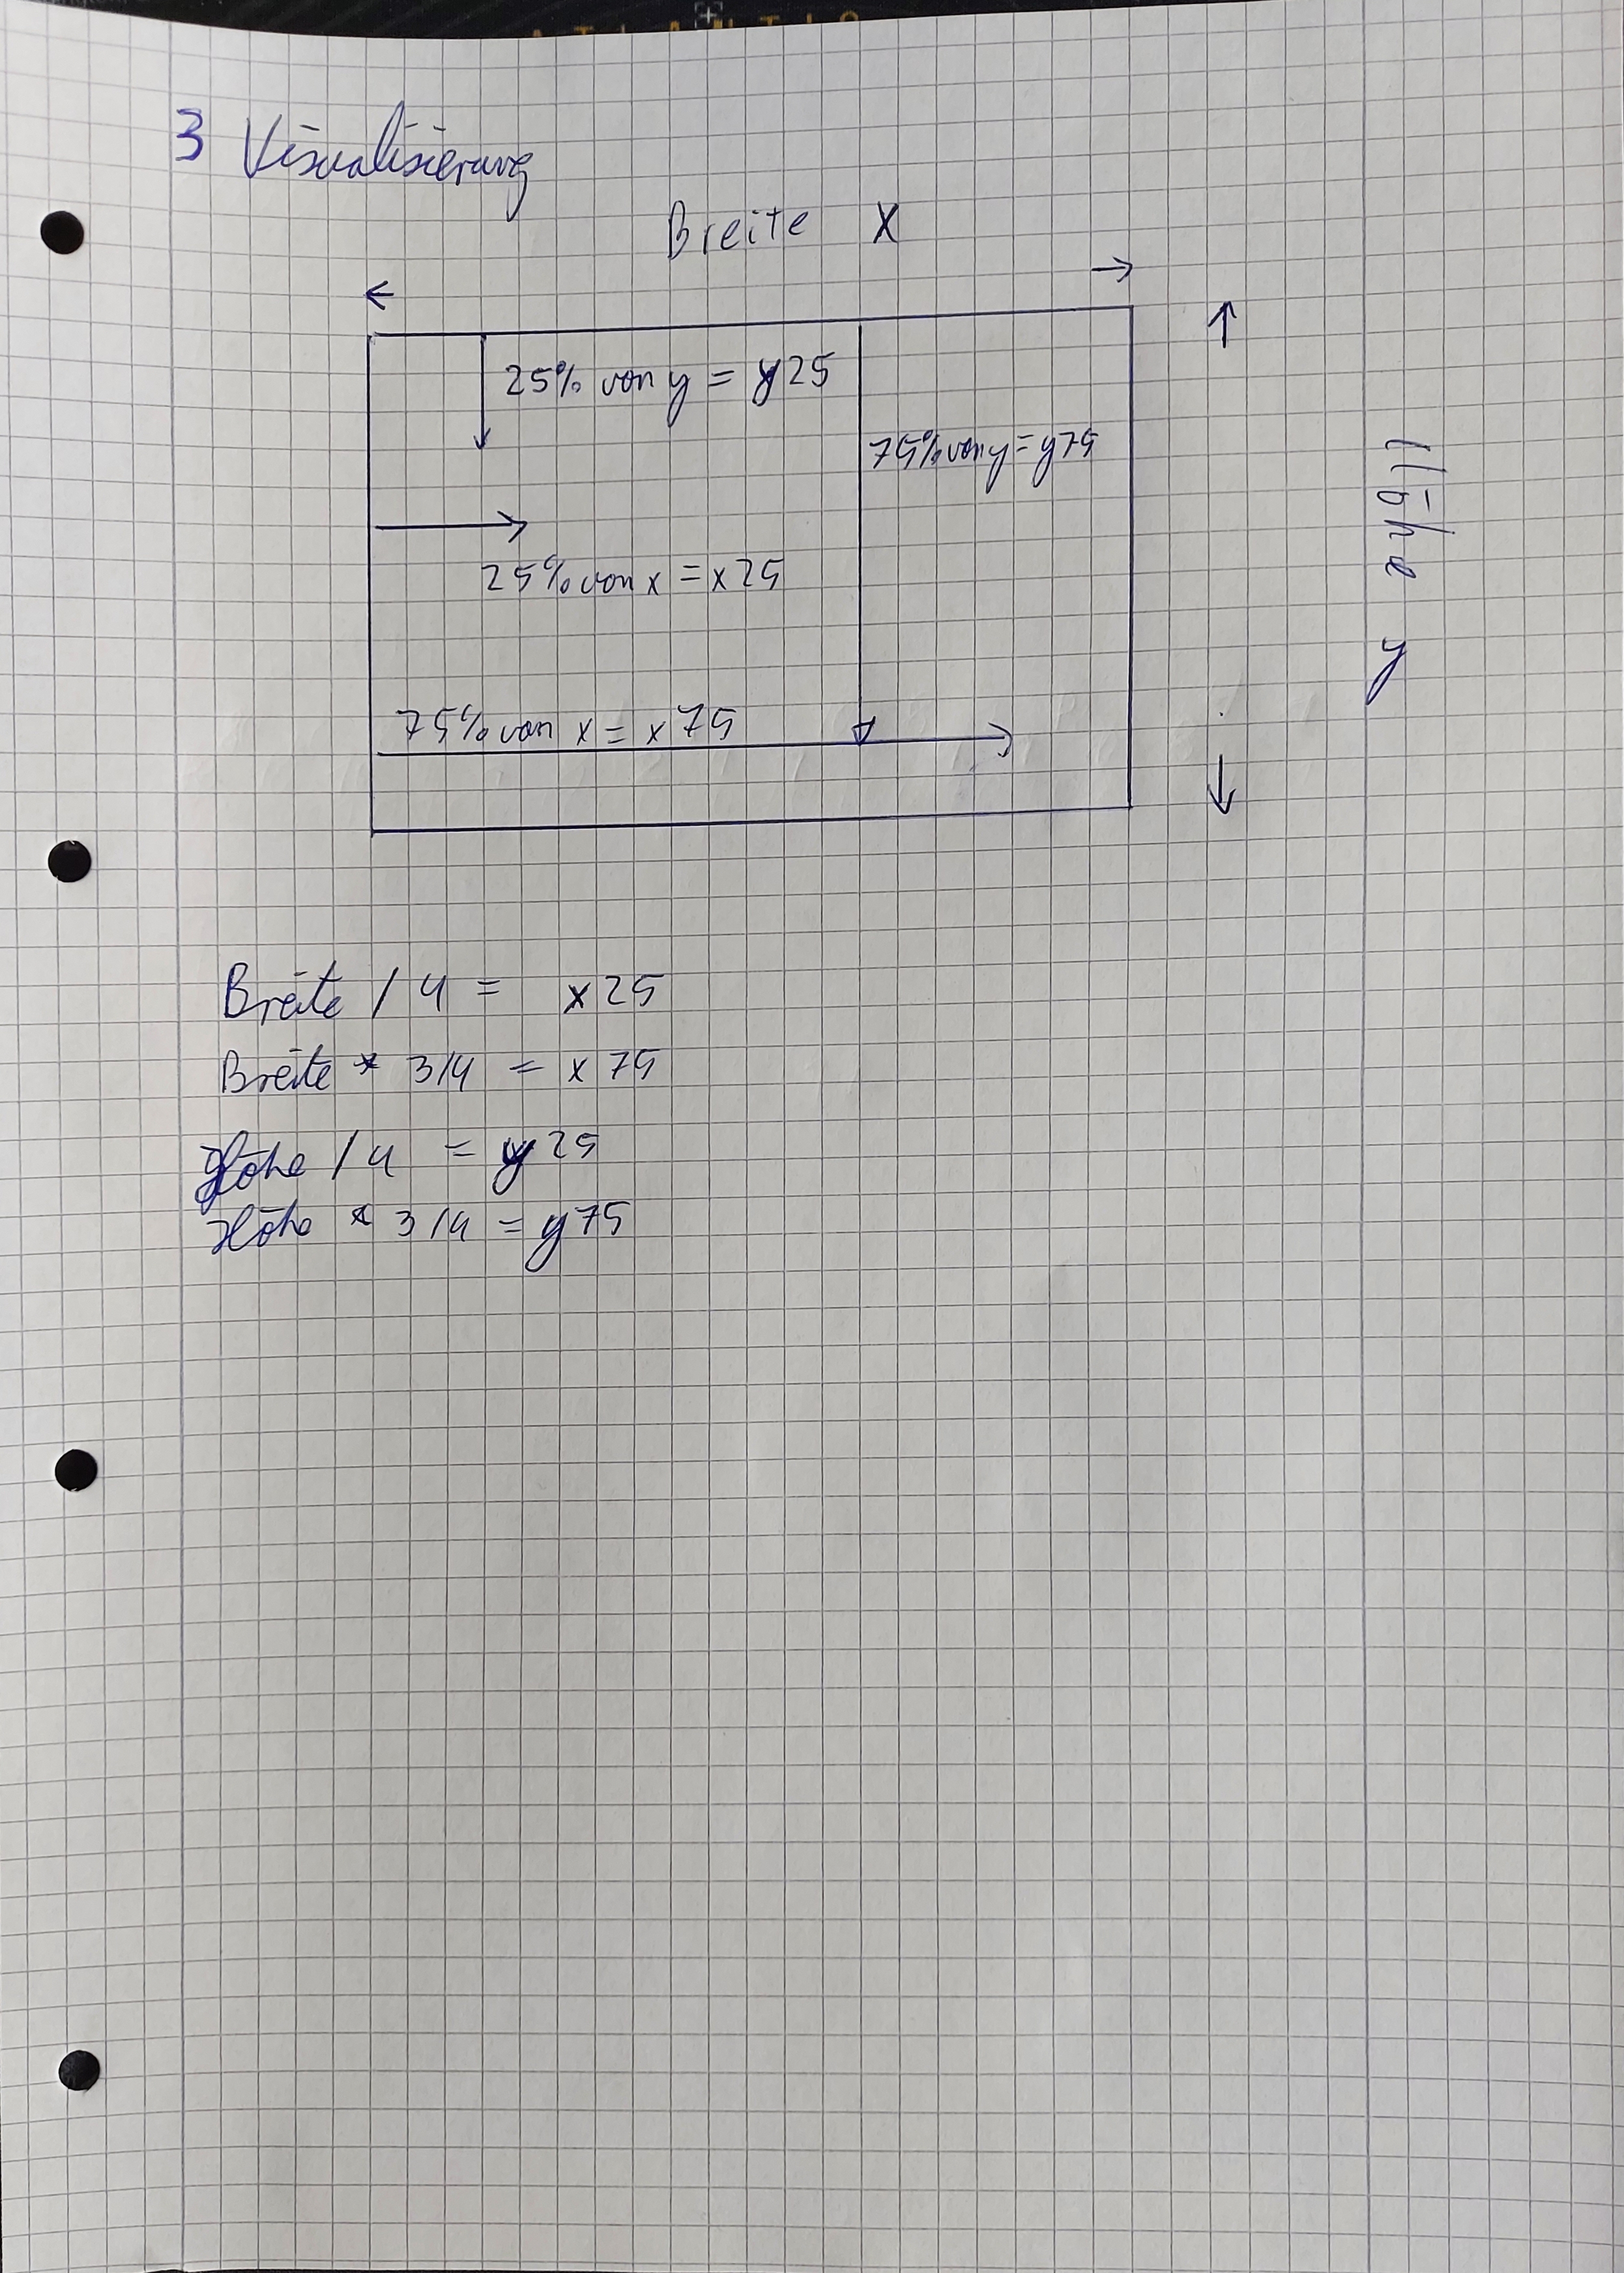 3 Visualisierung
Breite X
25% von y = y25
75% von y = y75
25% von x = x25
75% von x = x75
Höhe y
Breite / 4 = x25
Breite * 3/4 = x75
Höhe / 4 = y25
Höhe * 3/4 = y75